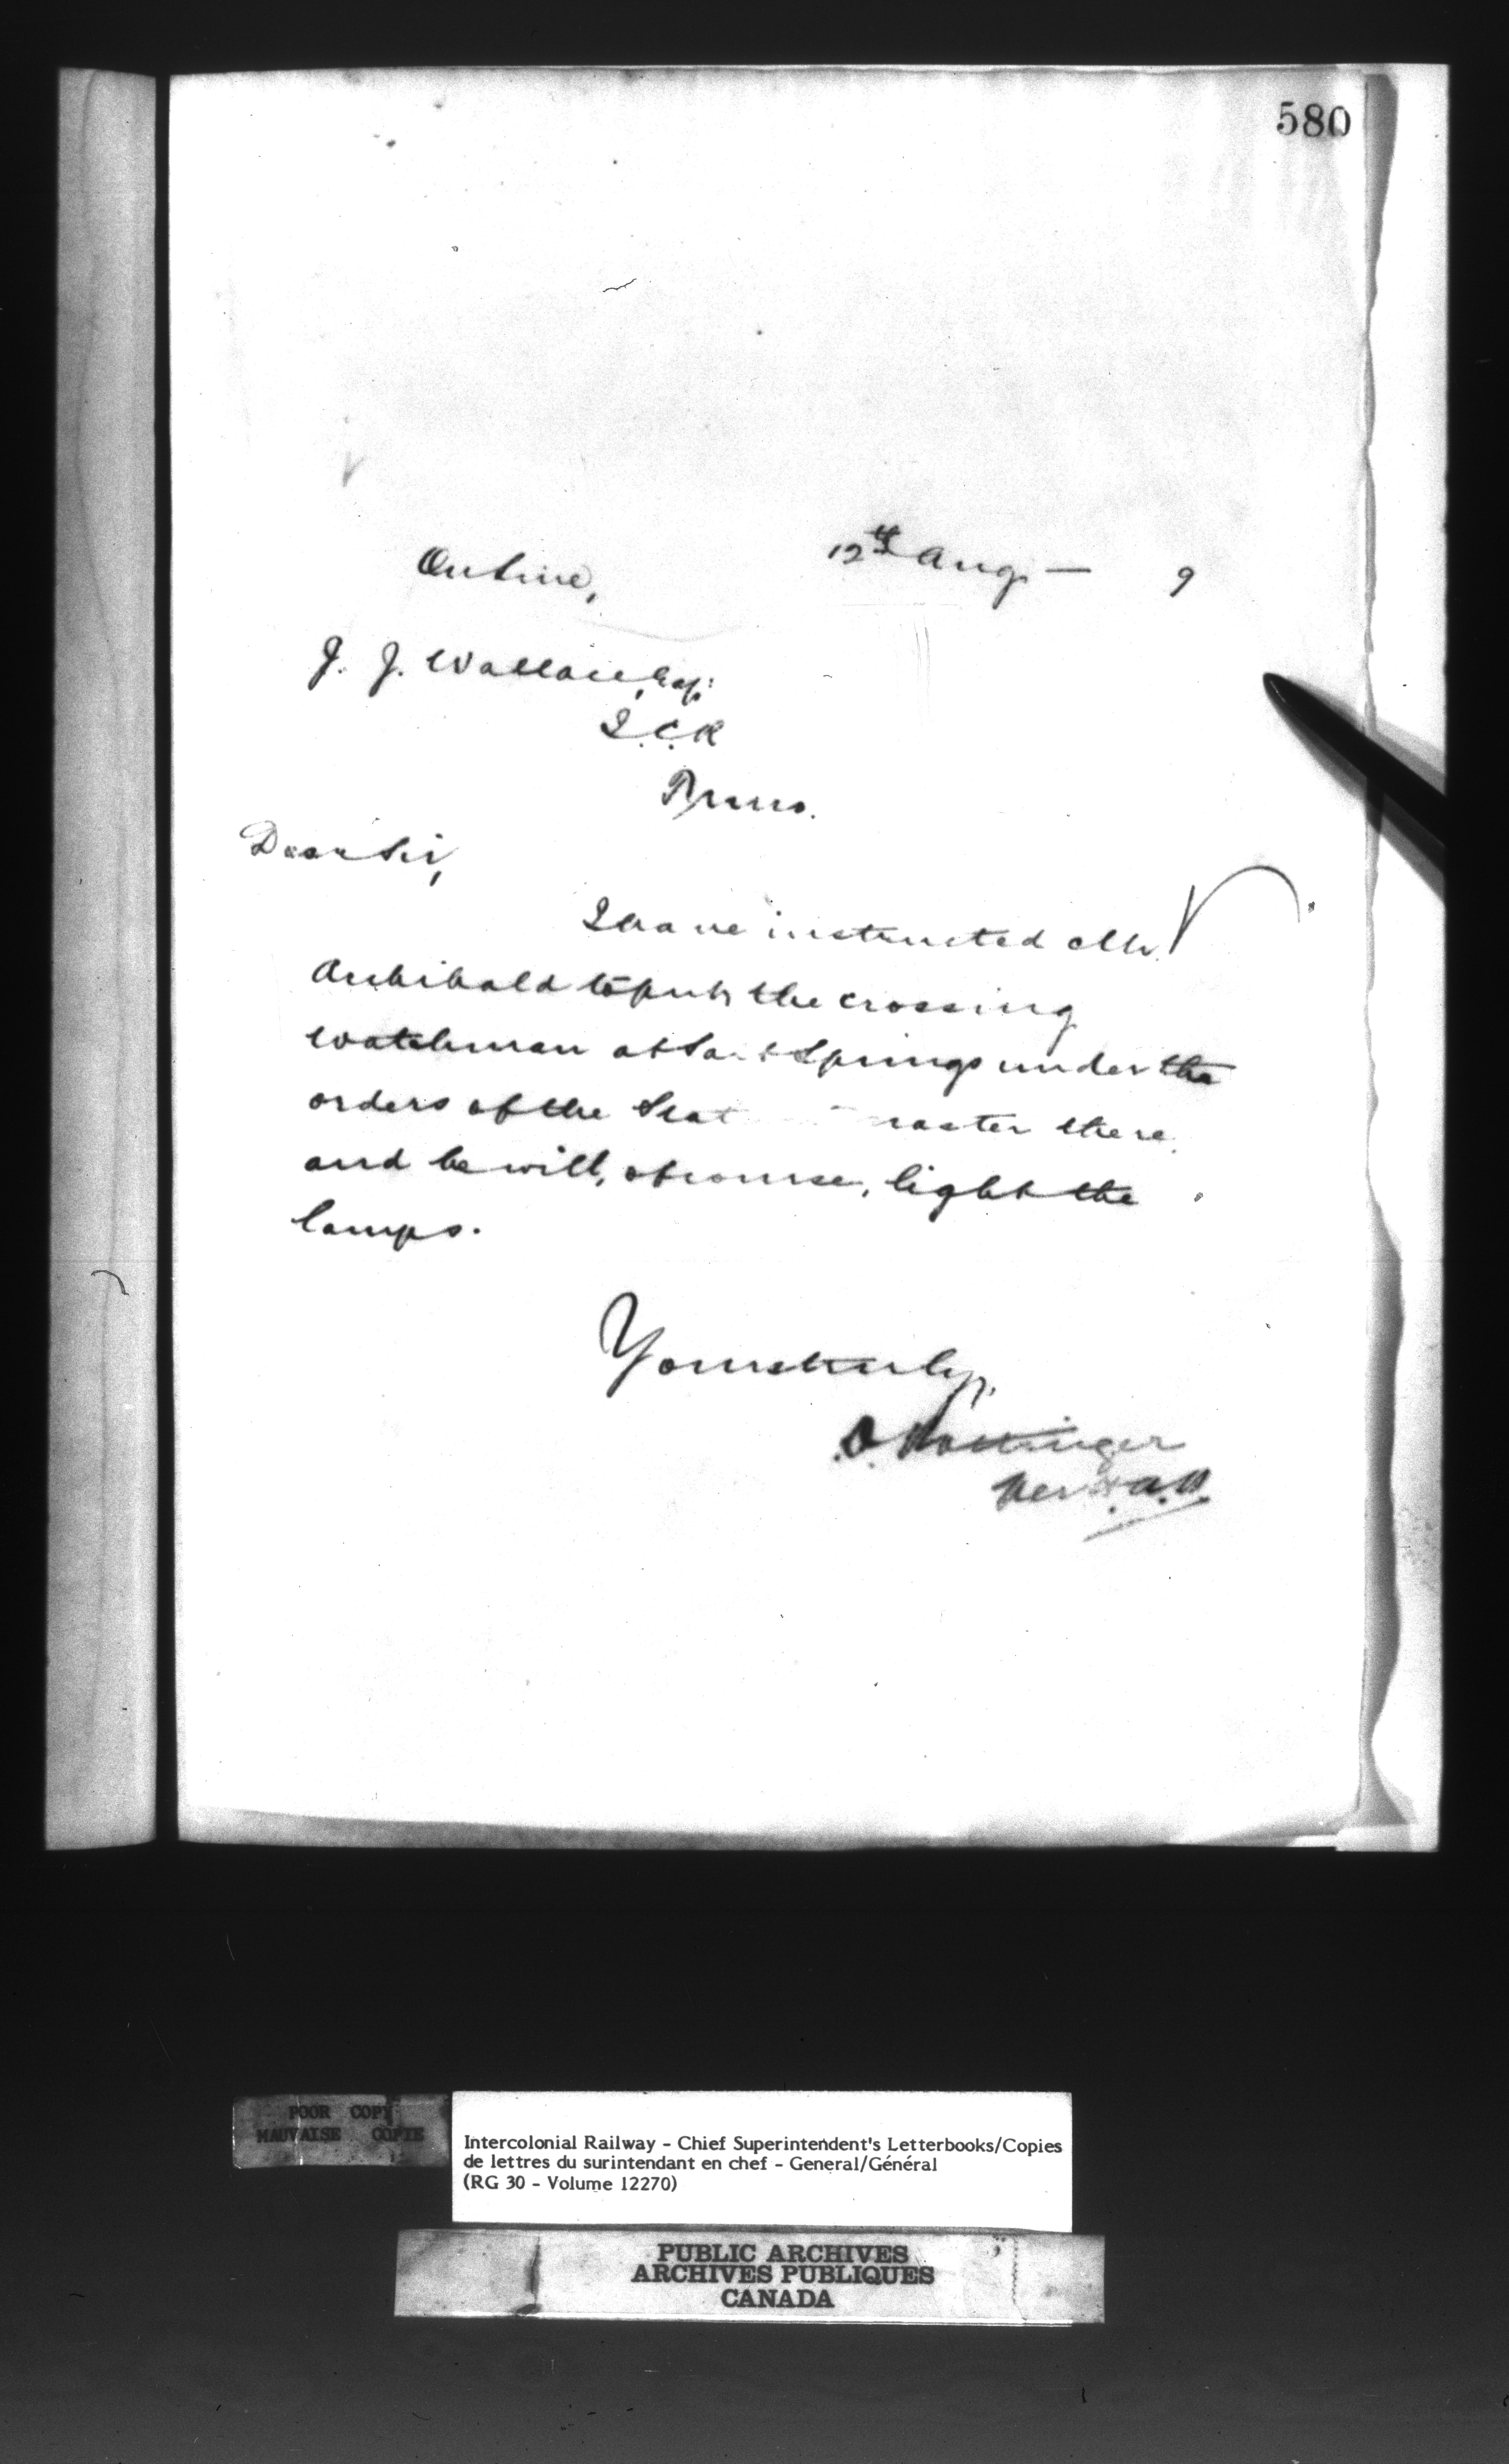 580
On Line,
12th Aug. — 9
J. J. Wallace, Esq:
I.C.R
Truro.
Dear Sir,
I have instructed Mr.
Archibald to put the crossing
watchman at Salt Springs under the
orders of the Stat master there
and he will, of course, light the
lamps.
Yours truly,
D. Pottinger
Per H.A.W.
POOR COPY
MAUVAISE COPIE
Intercolonial Railway - Chief Superintendent's Letterbooks/Copies
de lettres du surintendant en chef - General/Général
(RG 30 - Volume 12270)
PUBLIC ARCHIVES
ARCHIVES PUBLIQUES
CANADA